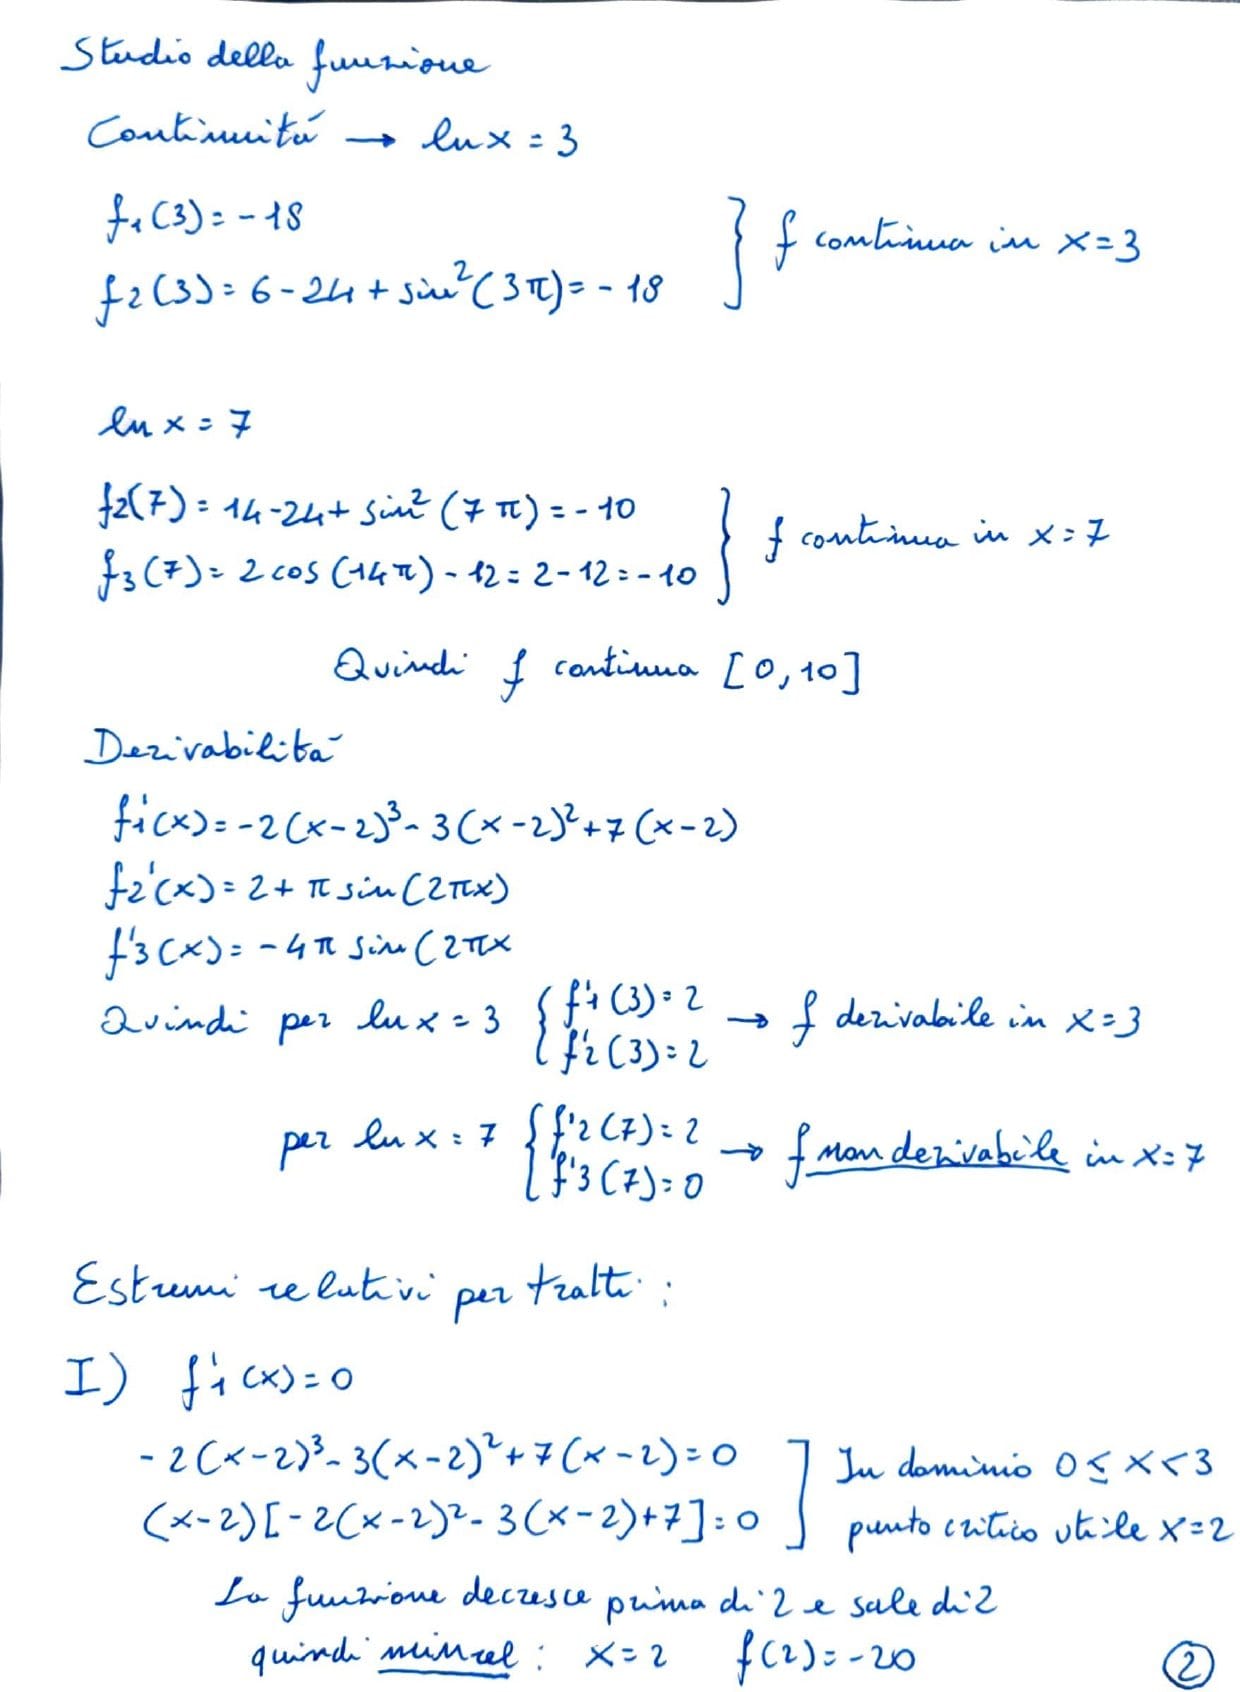 Studio della funzione
Continuitá → In x = 3
f₁(3) = -18
f₂(3) = 6 - 24 + sin²(3π) = -18
} f continua in x = 3
In x = 7
f₂(7) = 14 - 24 + sin²(7π) = -10
f₃(7) = 2 cos(14π) - 12 = 2 - 12 = -10
} f continua in x = 7
Quindi f continua [0, 10]
Derivabilitá
f₁'(x) = -2(x-2)³ - 3(x-2)² + 7(x-2)
f₂'(x) = 2 + π sin(2πx)
f'₃(x) = -4π sin(2πx
Quindi per In x = 3 { f'₁(3) = 2
f'₂(3) = 2 → f derivabile in x = 3
per In x = 7 { f'₂(7) = 2
f'₃(7) = 0 → f non derivabile in x = 7
Estremi relativi per tratti :
I) f'₁(x) = 0
-2(x-2)³ - 3(x-2)² + 7(x-2) = 0
(x-2)[-2(x-2)² - 3(x-2) + 7] = 0
] In dominio 0 ≤ x < 3
punto critico utile x = 2
La funzione decresce prima di 2 e sale di 2
quindi min rel : x = 2 f(2) = -20
2